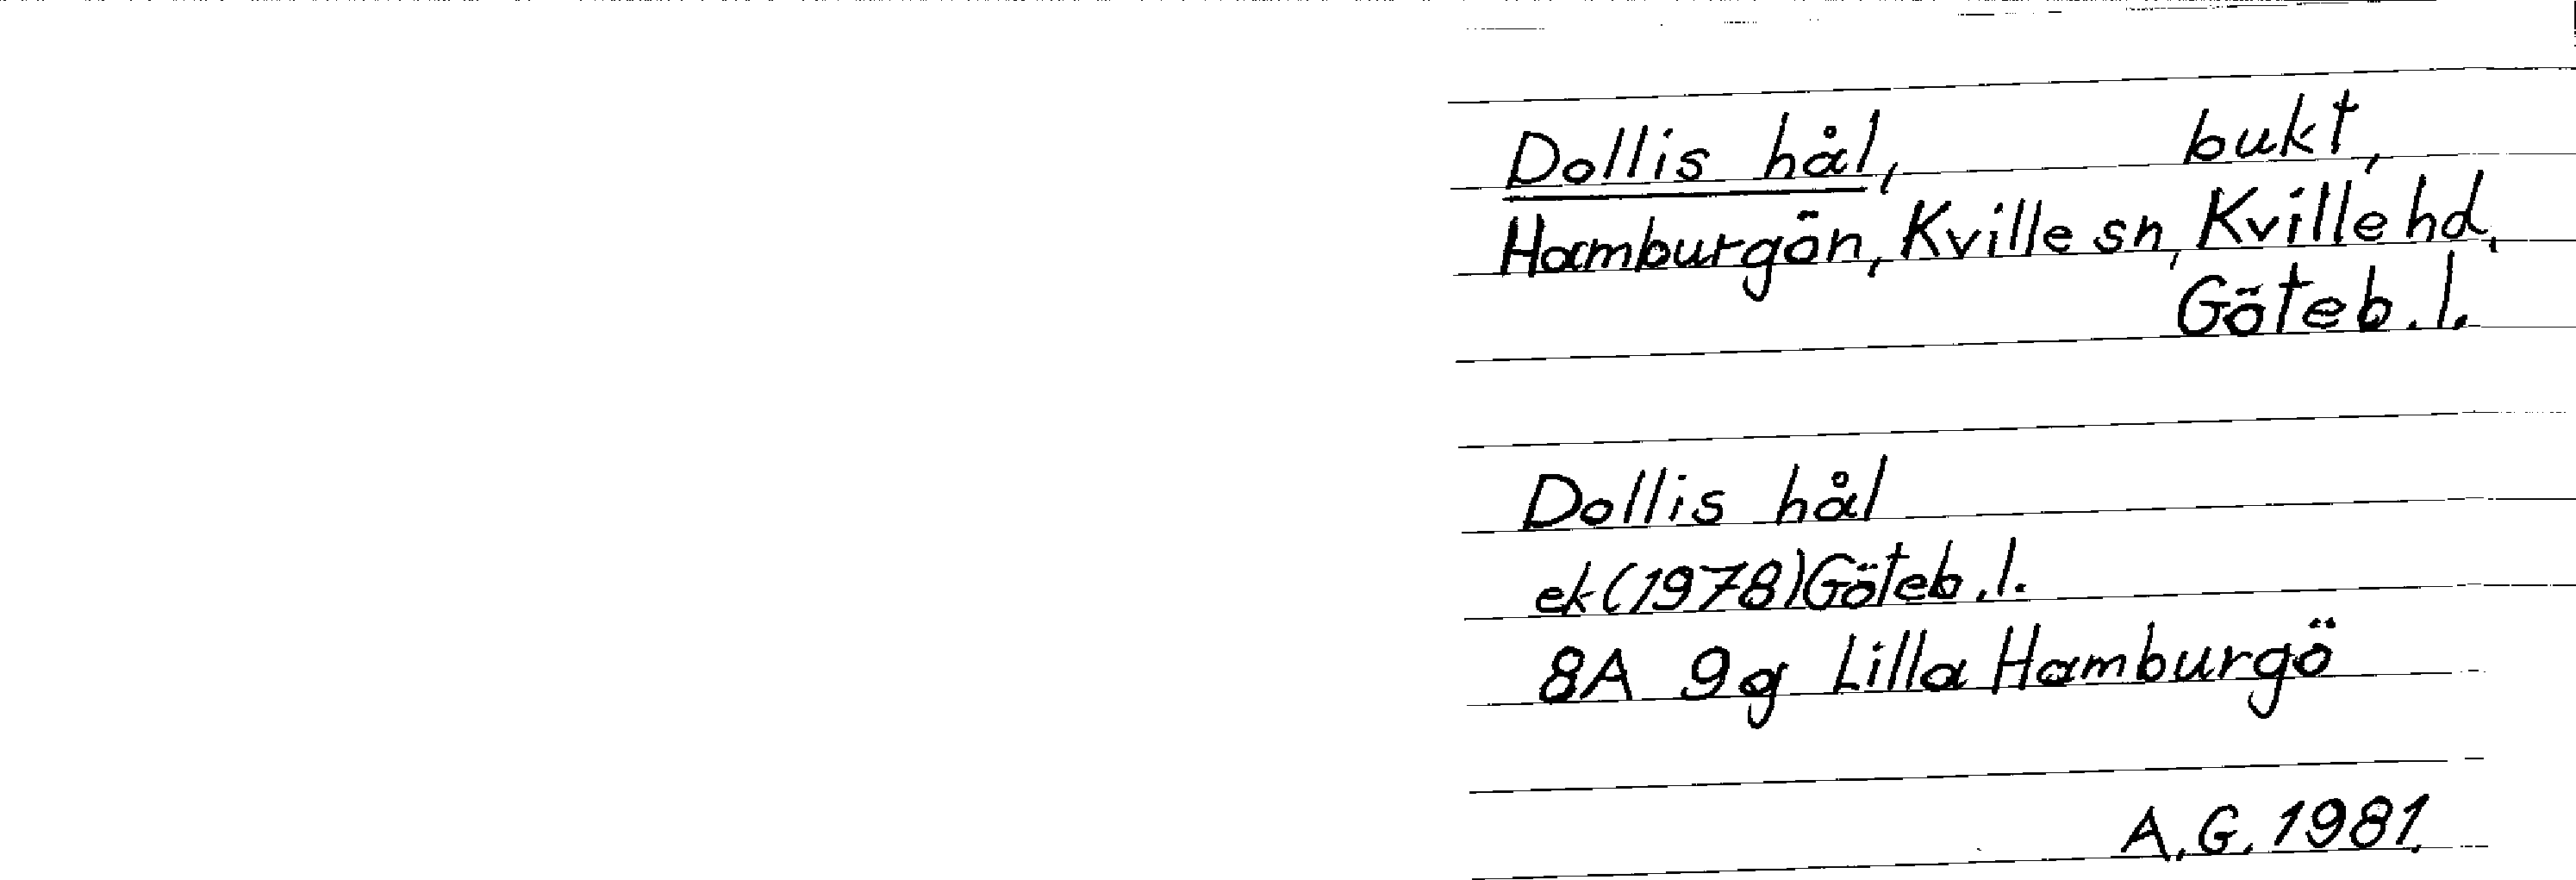 Dollis hål, bukt,
Hamburgön, Kville sn, Kville hd,
Göteb. l.
Dollis hål
ek (1978) Göteb. l.
8A 9g Lilla Hamburgö
A. G. 1981.